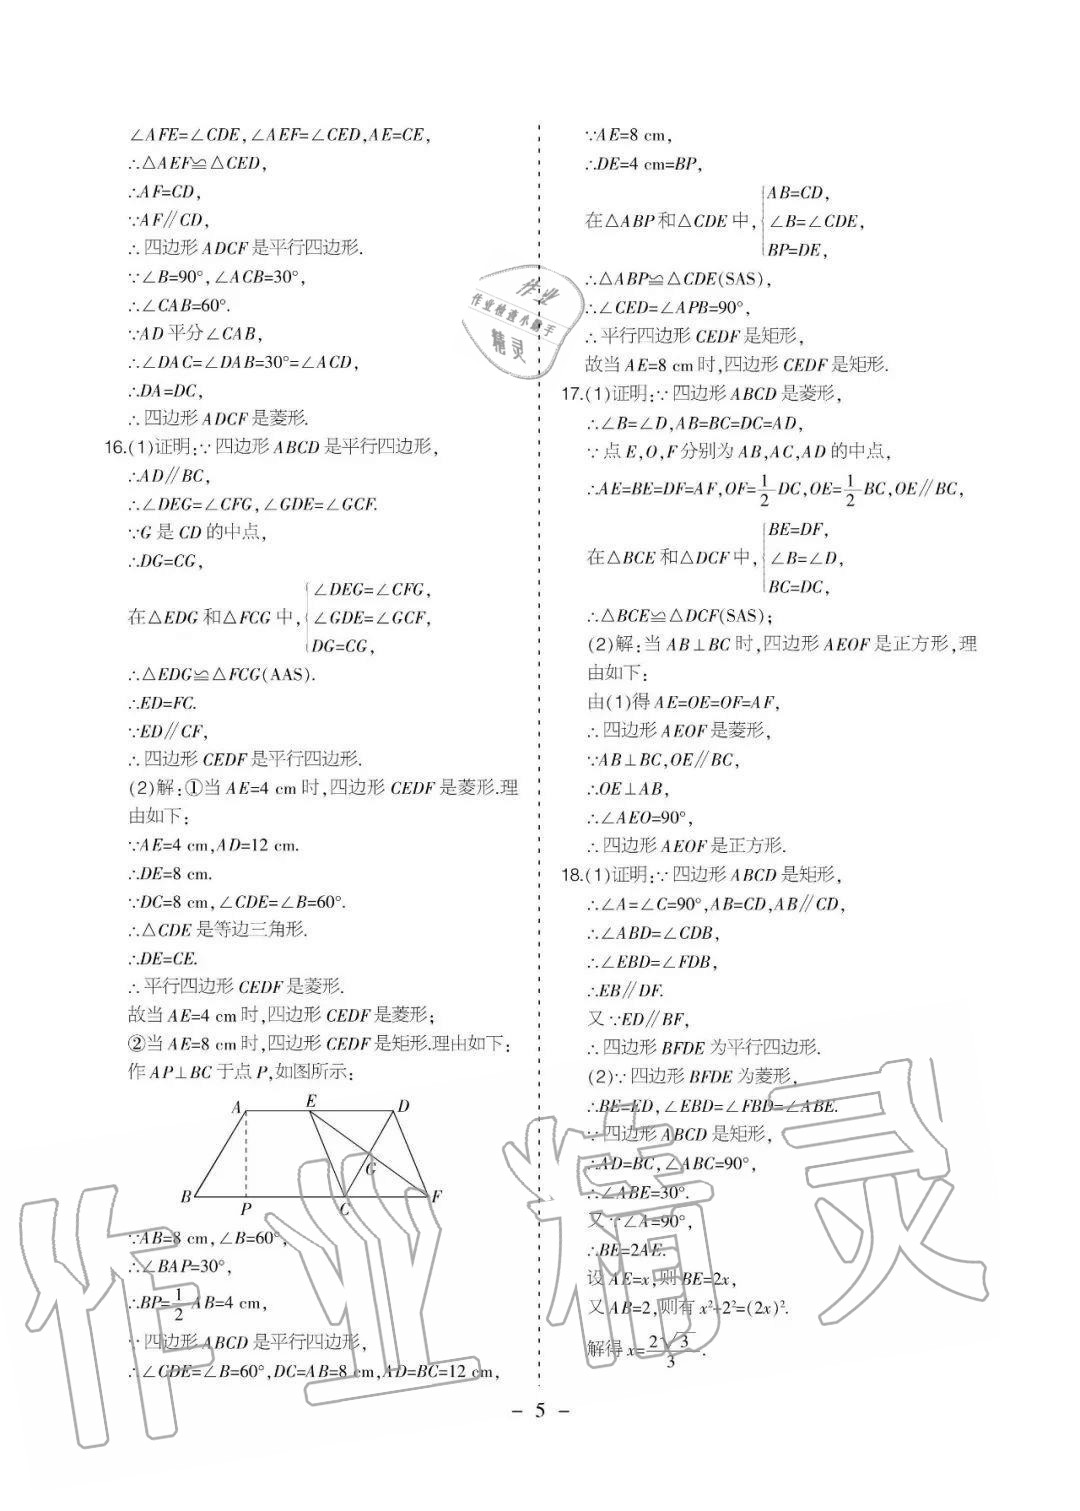 ∠AFE=∠CDE,∠AEF=∠CED,AE=CE,
∴△AEF≌△CED,
∴AF=CD,
∵AF∥CD,
∴四边形ADCF是平行四边形.
∵∠B=90°,∠ACB=30°,
∴∠CAB=60°.
∵AD平分∠CAB,
∴∠DAC=∠DAB=30°=∠ACD,
∴DA=DC,
∴四边形ADCF是菱形.
16.(1)证明:∵四边形ABCD是平行四边形,
∴AD∥BC,
∴∠DEG=∠CFG,∠GDE=∠GCF.
∵G是CD的中点,
∴DG=CG,
在△EDG和△FCG中,{∠DEG=∠CFG,
∠GDE=∠GCF,
DG=CG,
∴△EDG≌△FCG(AAS).
∴ED=FC.
∵ED∥CF,
∴四边形CEDF是平行四边形.
(2)解:①当AE=4 cm时,四边形CEDF是菱形.理
由如下:
∵AE=4 cm,AD=12 cm.
∴DE=8 cm.
∵DC=8 cm,∠CDE=∠B=60°.
∴△CDE是等边三角形.
∴DE=CE.
∴平行四边形CEDF是菱形.
故当AE=4 cm时,四边形CEDF是菱形;
②当AE=8 cm时,四边形CEDF是矩形.理由如下:
作AP⊥BC于点P,如图所示:
A E D
G
B P C F
∵AB=8 cm,∠B=60°,
∴∠BAP=30°,
∴BP=1/2 AB=4 cm,
∵四边形ABCD是平行四边形,
∴∠CDE=∠B=60°,DC=AB=8 cm,AD=BC=12 cm,
∵AE=8 cm,
∴DE=4 cm=BP,
在△ABP和△CDE中,{AB=CD,
∠B=∠CDE,
BP=DE,
∴△ABP≌△CDE(SAS),
∴∠CED=∠APB=90°,
∴平行四边形CEDF是矩形,
故当AE=8 cm时,四边形CEDF是矩形.
17.(1)证明:∵四边形ABCD是菱形,
∴∠B=∠D,AB=BC=DC=AD,
∵点E,O,F分别为AB,AC,AD的中点,
∴AE=BE=DF=AF,OF=1/2 DC,OE=1/2 BC,OE∥BC,
在△BCE和△DCF中,{BE=DF,
∠B=∠D,
BC=DC,
∴△BCE≌△DCF(SAS);
(2)解:当AB⊥BC时,四边形AEOF是正方形,理
由如下:
由(1)得AE=OE=OF=AF,
∴四边形AEOF是菱形,
∵AB⊥BC,OE∥BC,
∴OE⊥AB,
∴∠AEO=90°,
∴四边形AEOF是正方形.
18.(1)证明:∵四边形ABCD是矩形,
∴∠A=∠C=90°,AB=CD,AB∥CD,
∴∠ABD=∠CDB,
∴∠EBD=∠FDB,
∴EB∥DF.
又∵ED∥BF,
∴四边形BFDE为平行四边形.
(2)∵四边形BFDE为菱形,
∴BE=ED,∠EBD=∠FBD=∠ABE.
∵四边形ABCD是矩形,
∴AD=BC,∠ABC=90°,
∴∠ABE=30°.
又∵∠A=90°,
∴BE=2AE.
设AE=x,则BE=2x,
又AB=2,则有x²+2²=(2x)².
解得x=2√3/3.
– 5 –
作业
作业检查小助手
精灵
作业精灵